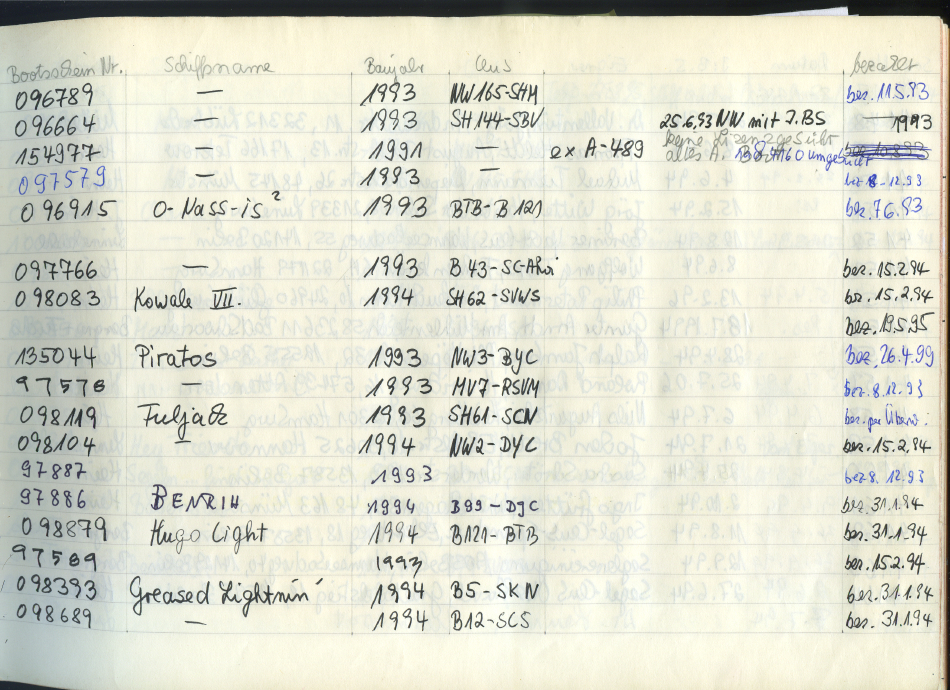 Bootsschein Nr. Schiffsname Baujahr Club bezahlt
096789 — 1993 NW165-SHM bez. 11.5.93
096664 — 1993 SH144-SBV 25.6.93 NW mit J.BS 1993
154977 — 1991 — ex A-489 keine Lizenzgebühr
097579 — 1993 — bez 8.12.93
096915 O-Nass-is² 1993 BTB-B121 bez. 7.6.93
097766 — 1993 B43- bez. 15.2.94
098083 Kowale VII. 1994 SH62-SVWS bez. 15.2.94
bez. 19.5.95
135044 Piratos 1993 NW3-BYC bez. 26.4.99
97578 — 1993 MV7-RSVM bez. 8.12.93
098119 1993 SH61-SCN bez. per
098104 — 1994 NW2-DYC bez. 15.2.94
97887 1993 bez 8.12.93
97886 1994 B99-DJC bez. 31.1.94
098879 Hugo Light 1994 B121-BTB bez. 31.1.94
97589 1993 bez. 15.2.94
098393 Greased Lightnin' 1994 B5-SKN bez. 31.1.94
098689 — 1994 B12-SCS bez. 31.1.94